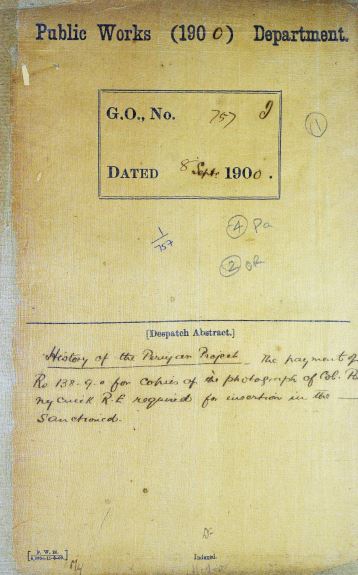 Public Works (1900) Department.
G.O., No. 757 I
11
DATED 8 Sept. 1900.
1/757
4 Pa
2 OR
[Despatch Abstract.]
History of the Periyar Project - The payment of
Rs 138-9-0 for copies of the photograph of Col. Pe
nycuick R.E required for insertion in the —
Sanctioned.
Indexed.